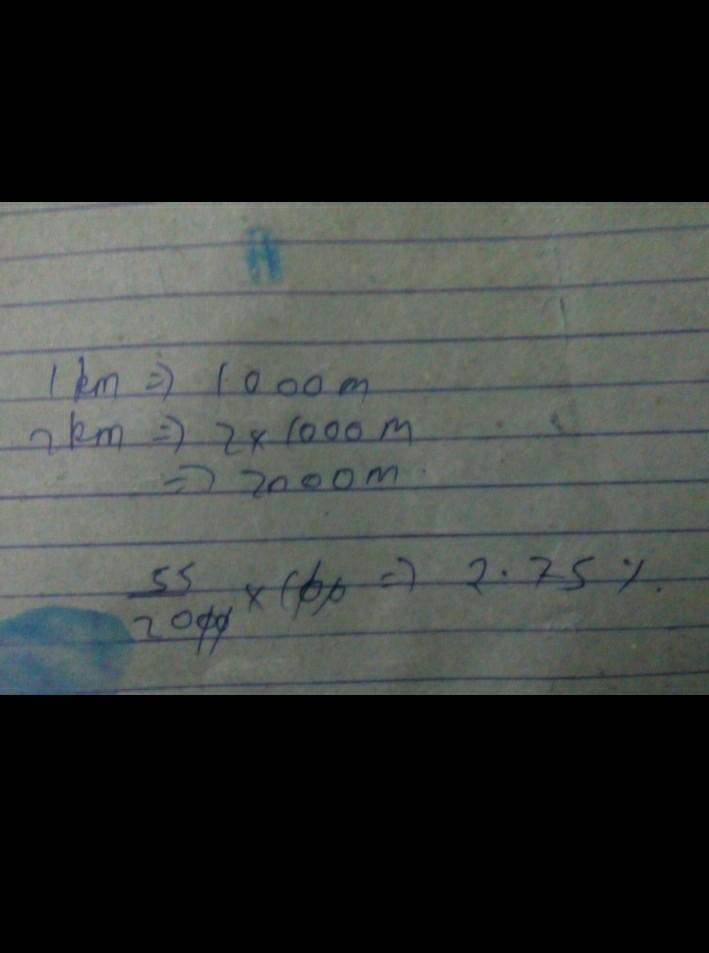 1 km => 1000m
2 km => 2x1000m
=> 2000m.
55/2000 x 100 => 2.75 %.